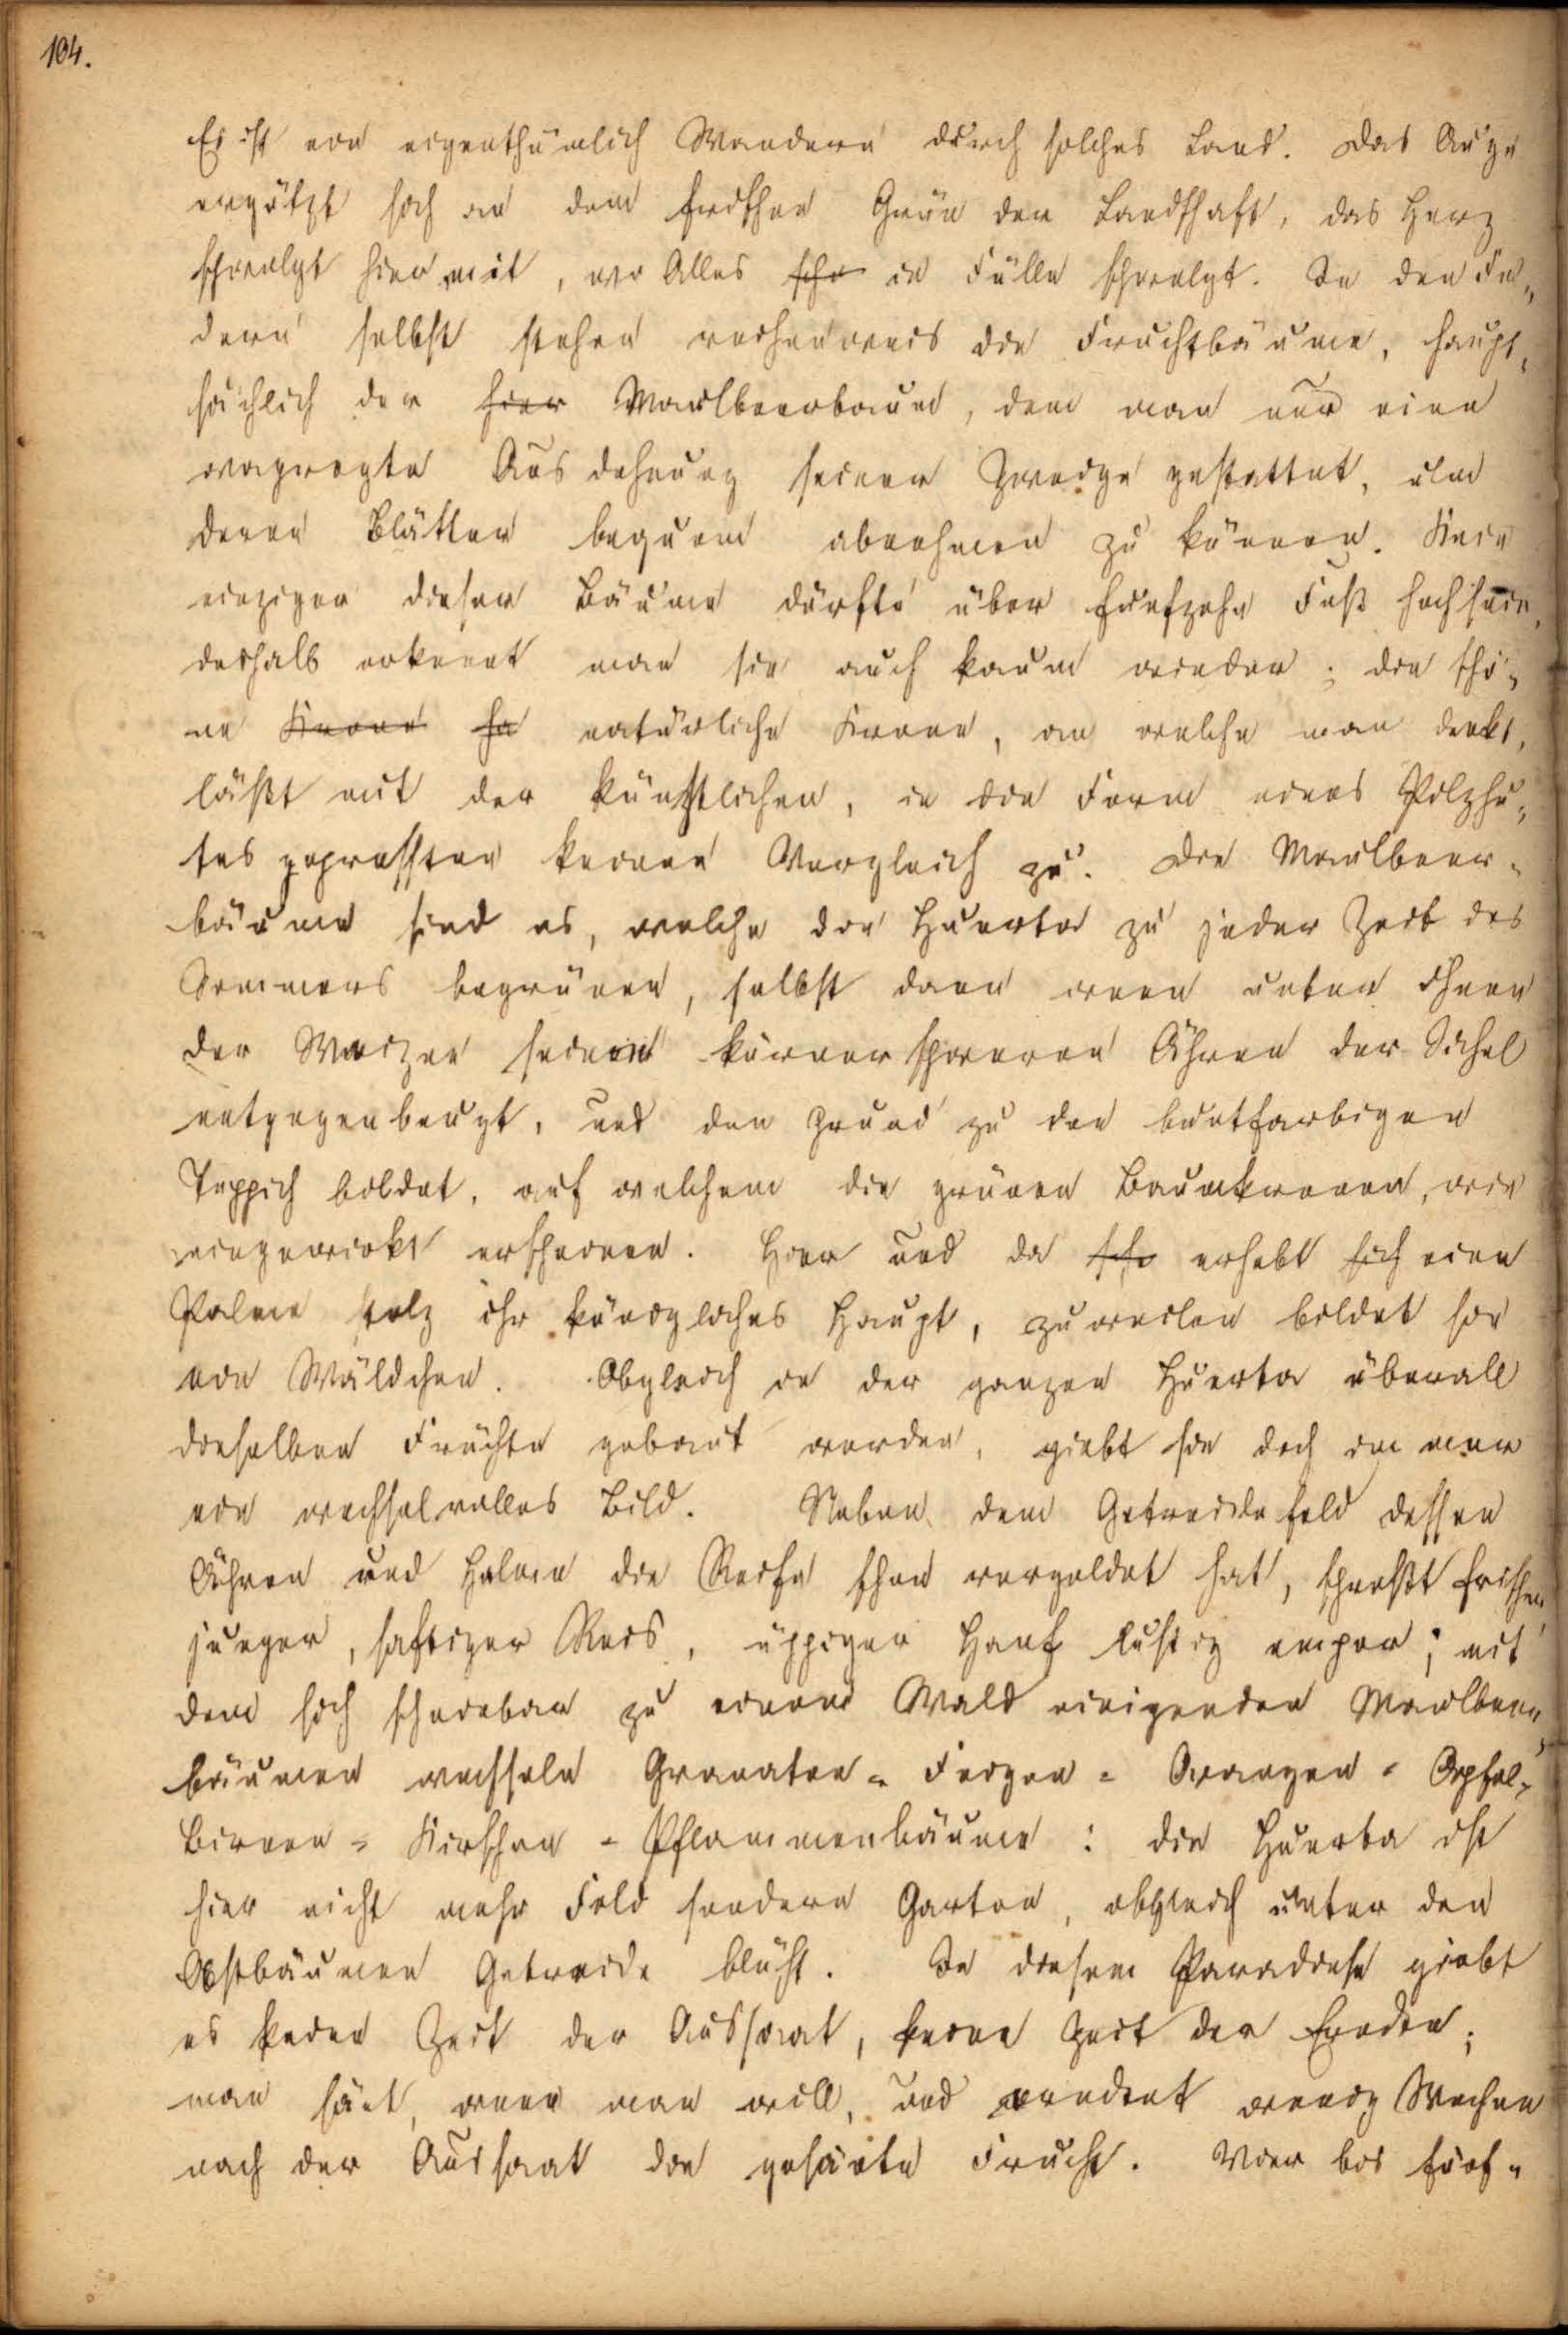 104.
Es ist ein eigenthümlich Wandern durch solches Land. Das Auge
ergötzt sich an dem frischen Grün der Landschaft, das Herz
schwelgt hier mit, wo Alles sche in Fülle schwelgt. In den Fel-
dern selbst stehen reihenweis die Fruchtbäume, haupt-
sächlich der hier Maulbeerbaum, dem man nur eine
Ausdehnung seiner Zweige gestattet, um
deren Blätter bequem abnehmen zu können. Kein
einziger dieser Bäume dürfte über funfzehn Fuß hoch sein,
deshalb erkennt man sie auch kaum wieder; die schö-
ne Krone ha natürliche Krone, an welche man denkt,
läßt mit der künstlichen, in die Form eines Pilzhu-
tes gepressten keinen Vergleich zu. Die Maulbeer-
bäume sind es, welche die Huerta zu jeder Zeit des
Sommers begrünen, selbst dann wenn unter ihnen
der Weizen seine körnerschweren Ähren der Sichel
entgegenbeugt, und den Grund zu den buntfarbigen
Teppich bildet, auf welchem die grünen Baumkronen, wie
eingewirkt erscheinen. Hier und da sche erhebt sich eine
Palme stolz ihr königliches Haupt, zuweilen bildet sie
ein Wäldchen. Obgleich in der ganzen Huerta überall
dieselben Früchte gebaut werden, giebt sie doch immer
ein wechselvolles Bild. Neben dem Getreidefeld dessen
Ähren und Halme die Reife schon vergoldet hat, sproßt frischer
junger, saftiger Reis, üppiger Hanf lustig empor; mit
dem sich scheinbar zu einem Wald einigenden Maulbeer-
bäumen wechseln Granaten- Feigen- Orangen- Apfel-
Birnen- Kirschen- Pflaumenbäume: die Huerta ist
hier nicht mehr Feld sondern Garten, obgleich unter den
Obstbäumen Getreide blüht. In diesem Paradiese giebt
es keine Zeit der Aussaat, keine Zeit der Erndte;
man säet, wenn man will, und erndtet wenig Wochen
nach der Aussaat die gesäete Frucht. Vier bis fünf-